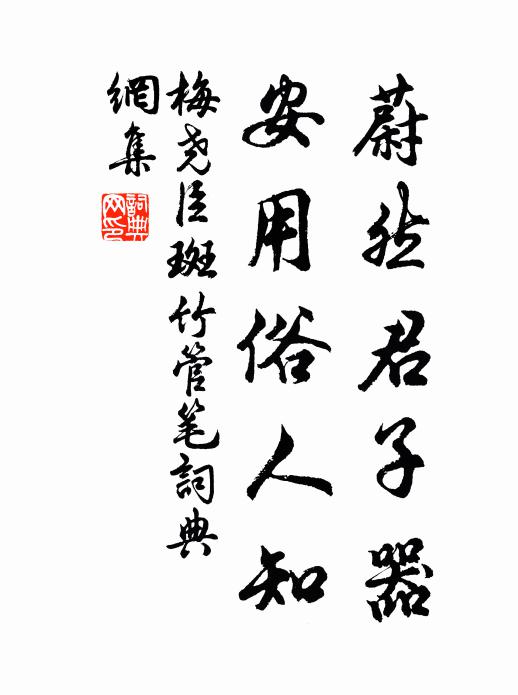 蔚然君子器
安用俗人知
梅尧臣斑竹管笔詞典
網集
詞典
网印